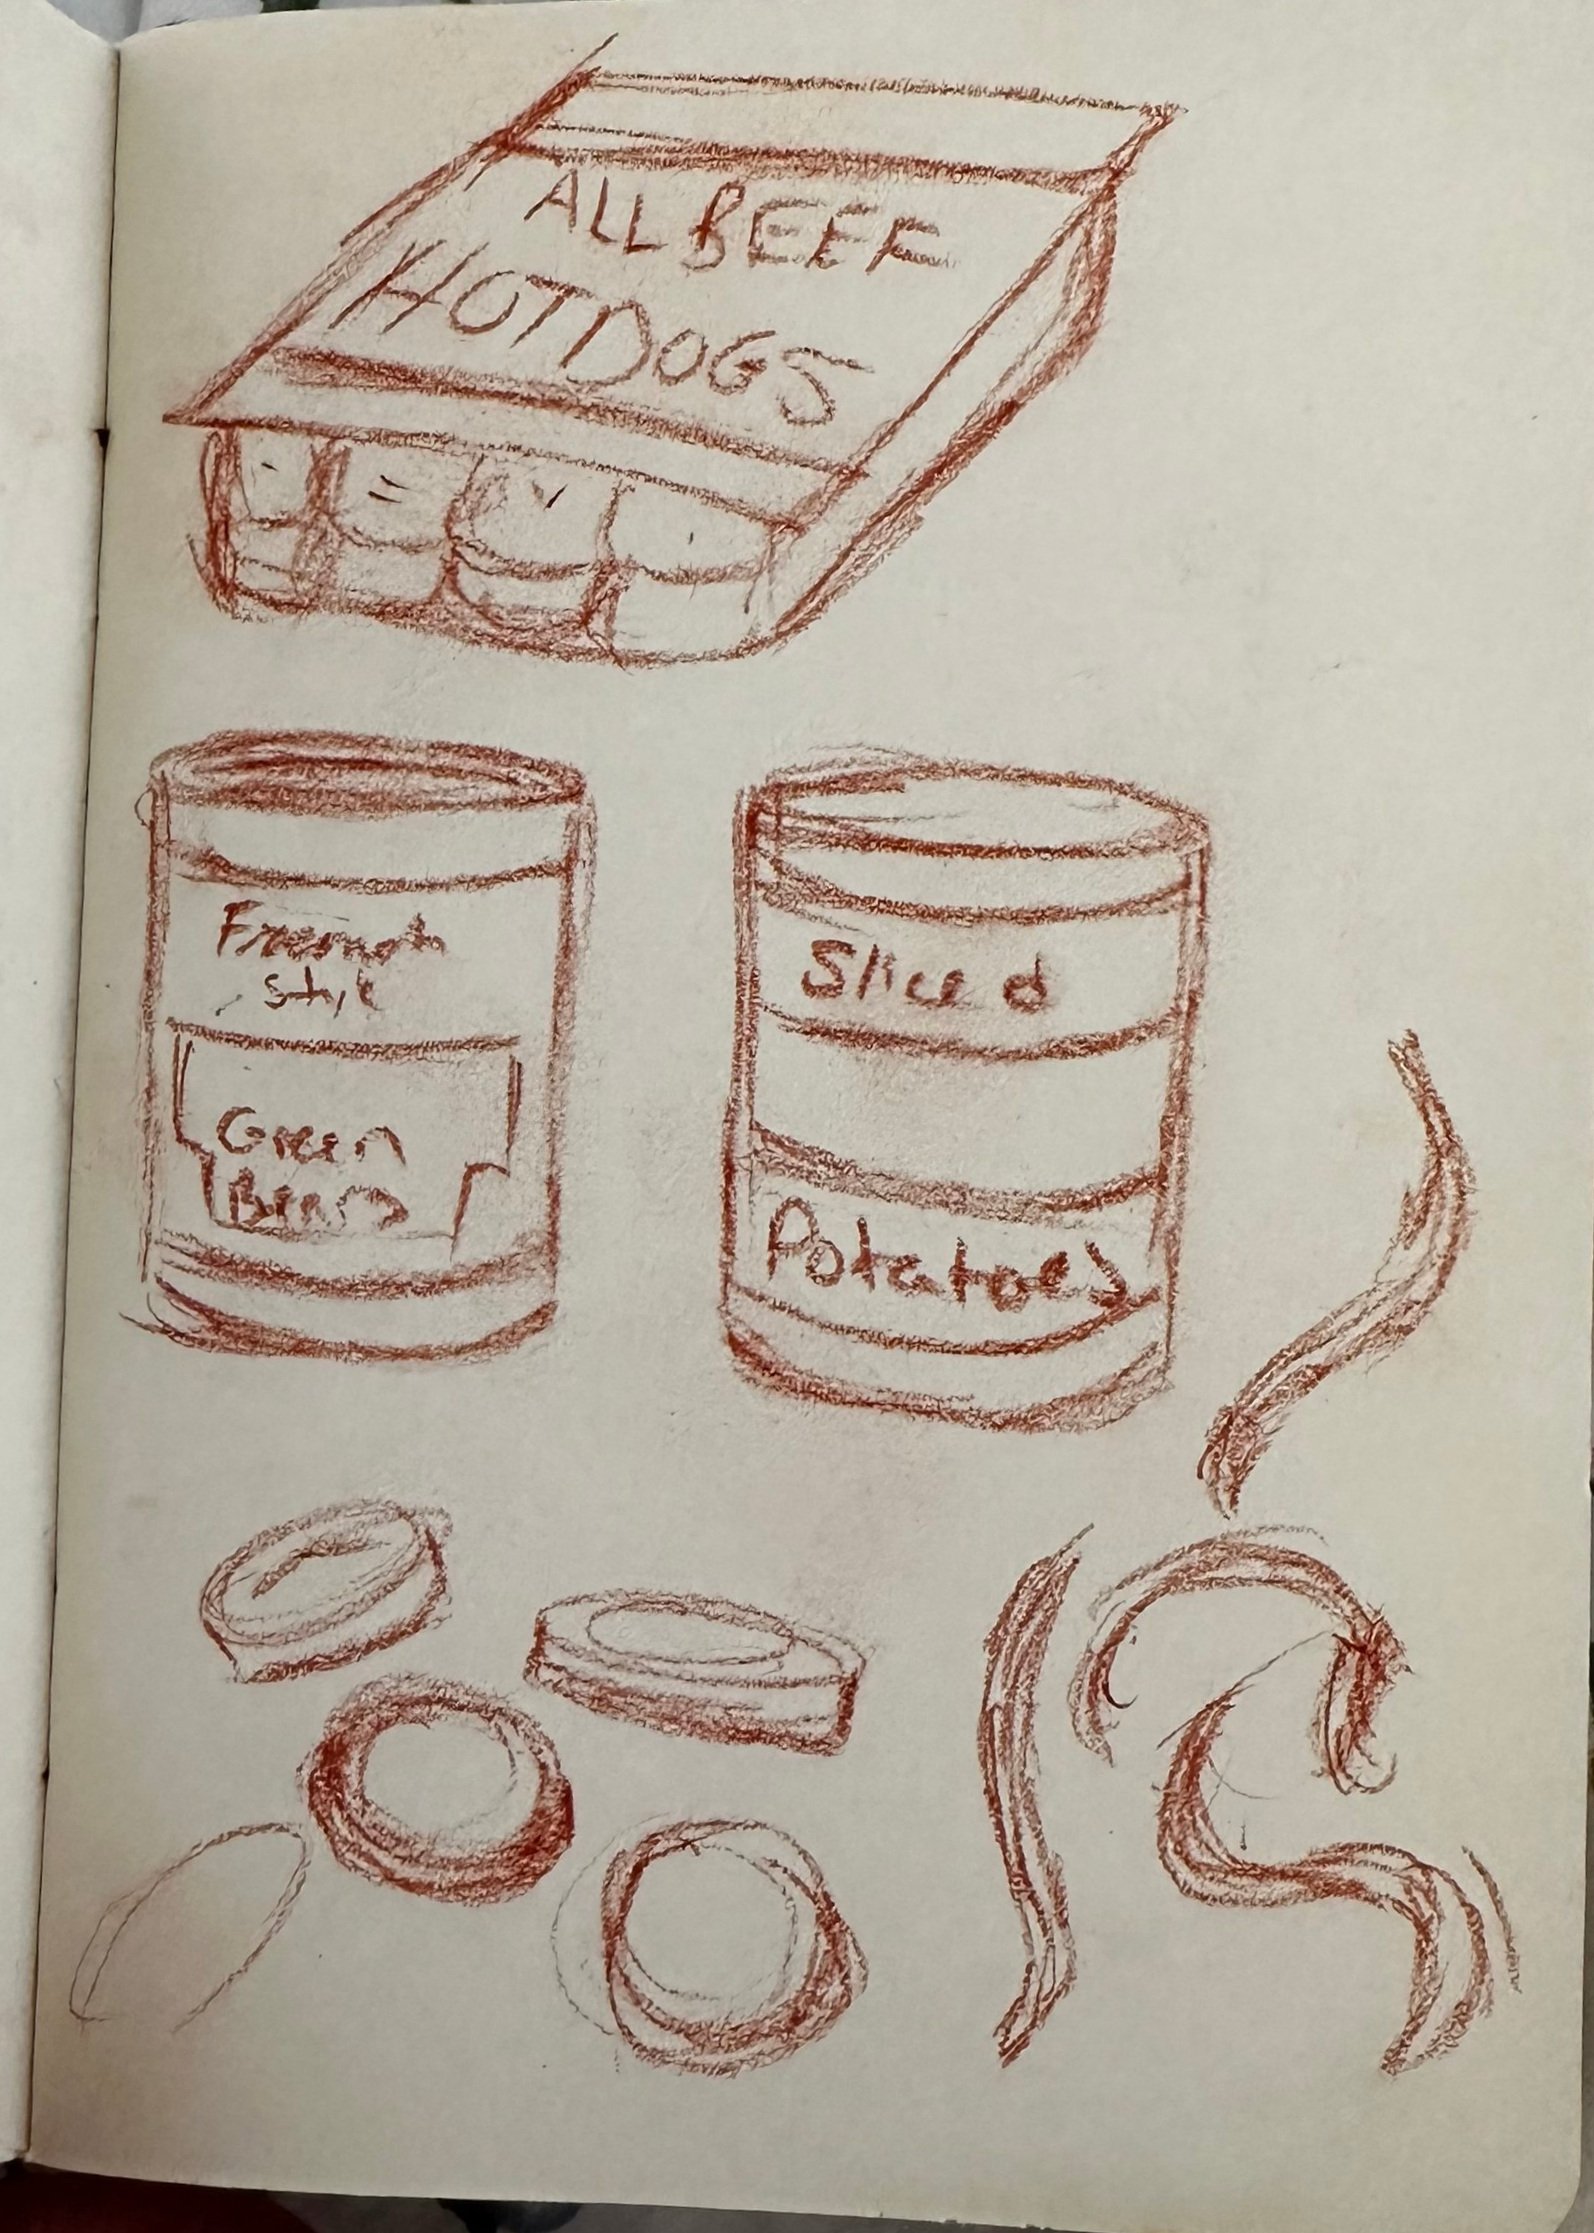 ALL BEEF
HOTDOGS
French
Style
Sliced
Green
Beans
Potatoes